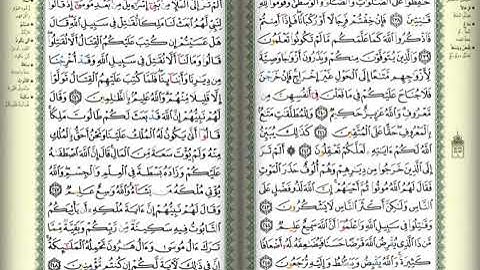 حَٰفِظُوا۟ عَلَى ٱلصَّلَوَٰتِ وَٱلصَّلَوٰةِ ٱلْوُسْطَىٰ وَقُومُوا۟ لِلَّهِ
قَٰنِتِينَ ٢٣٨ فَإِنْ خِفْتُمْ فَرِجَالًا أَوْ رُكْبَانًا فَإِذَآ أَمِنتُمْ
فَٱذْكُرُوا۟ ٱللَّهَ كَمَا عَلَّمَكُم مَّا لَمْ تَكُونُوا۟ تَعْلَمُونَ ٢٣٩
وَٱلَّذِينَ يُتَوَفَّوْنَ مِنكُمْ وَيَذَرُونَ أَزْوَٰجًا وَصِيَّةً
لِّأَزْوَٰجِهِم مَّتَٰعًا إِلَى ٱلْحَوْلِ غَيْرَ إِخْرَاجٍ فَإِنْ خَرَجْنَ
فَلَا جُنَاحَ عَلَيْكُمْ فِى مَا فَعَلْنَ فِىٓ أَنفُسِهِنَّ مِن
مَّعْرُوفٍ وَٱللَّهُ عَزِيزٌ حَكِيمٌ ٢٤٠ وَلِلْمُطَلَّقَٰتِ مَتَٰعٌۢ
بِٱلْمَعْرُوفِ حَقًّا عَلَى ٱلْمُتَّقِينَ ٢٤١ كَذَٰلِكَ يُبَيِّنُ
ٱللَّهُ لَكُمْ ءَايَٰتِهِۦ لَعَلَّكُمْ تَعْقِلُونَ ٢٤٢ أَلَمْ تَرَ
إِلَى ٱلَّذِينَ خَرَجُوا۟ مِن دِيَٰرِهِمْ وَهُمْ أُلُوفٌ حَذَرَ ٱلْمَوْتِ
فَقَالَ لَهُمُ ٱللَّهُ مُوتُوا۟ ثُمَّ أَحْيَٰهُمْ إِنَّ ٱللَّهَ لَذُو فَضْلٍ عَلَى
ٱلنَّاسِ وَلَٰكِنَّ أَكْثَرَ ٱلنَّاسِ لَا يَشْكُرُونَ ٢٤٣
وَقَٰتِلُوا۟ فِى سَبِيلِ ٱللَّهِ وَٱعْلَمُوٓا۟ أَنَّ ٱللَّهَ سَمِيعٌ عَلِيمٌ ٢٤٤
مَّن ذَا ٱلَّذِى يُقْرِضُ ٱللَّهَ قَرْضًا حَسَنًا فَيُضَٰعِفَهُۥ لَهُۥٓ أَضْعَافًا
كَثِيرَةً وَٱللَّهُ يَقْبِضُ وَيَبْصُۜطُ وَإِلَيْهِ تُرْجَعُونَ ٢٤٥
أَلَمْ تَرَ إِلَى ٱلْمَلَإِ مِنۢ بَنِىٓ إِسْرَٰٓءِيلَ مِنۢ بَعْدِ مُوسَىٰٓ إِذْ قَالُوا۟
لِنَبِىٍّ لَّهُمُ ٱبْعَثْ لَنَا مَلِكًا نُّقَٰتِلْ فِى سَبِيلِ ٱللَّهِ قَالَ
هَلْ عَسَيْتُمْ إِن كُتِبَ عَلَيْكُمُ ٱلْقِتَالُ أَلَّا تُقَٰتِلُوا۟
قَالُوا۟ وَمَا لَنَآ أَلَّا نُقَٰتِلَ فِى سَبِيلِ ٱللَّهِ وَقَدْ أُخْرِجْنَا
مِن دِيَٰرِنَا وَأَبْنَآئِنَا فَلَمَّا كُتِبَ عَلَيْهِمُ ٱلْقِتَالُ تَوَلَّوْا۟
إِلَّا قَلِيلًا مِّنْهُمْ وَٱللَّهُ عَلِيمٌۢ بِٱلظَّٰلِمِينَ ٢٤٦ وَقَالَ
لَهُمْ نَبِيُّهُمْ إِنَّ ٱللَّهَ قَدْ بَعَثَ لَكُمْ طَالُوتَ مَلِكًا
قَالُوٓا۟ أَنَّىٰ يَكُونُ لَهُ ٱلْمُلْكُ عَلَيْنَا وَنَحْنُ أَحَقُّ بِٱلْمُلْكِ
مِنْهُ وَلَمْ يُؤْتَ سَعَةً مِّنَ ٱلْمَالِ قَالَ إِنَّ ٱللَّهَ ٱصْطَفَىٰهُ
عَلَيْكُمْ وَزَادَهُۥ بَسْطَةً فِى ٱلْعِلْمِ وَٱلْجِسْمِ وَٱللَّهُ
يُؤْتِى مُلْكَهُۥ مَن يَشَآءُ وَٱللَّهُ وَٰسِعٌ عَلِيمٌ ٢٤٧
وَقَالَ لَهُمْ نَبِيُّهُمْ إِنَّ ءَايَةَ مُلْكِهِۦٓ أَن يَأْتِيَكُمُ
ٱلتَّابُوتُ فِيهِ سَكِينَةٌ مِّن رَّبِّكُمْ وَبَقِيَّةٌ مِّمَّا
تَرَكَ ءَالُ مُوسَىٰ وَءَالُ هَٰرُونَ تَحْمِلُهُ ٱلْمَلَٰٓئِكَةُ
إِنَّ فِى ذَٰلِكَ لَءَايَةً لَّكُمْ إِن كُنتُم مُّؤْمِنِينَ ٢٤٨